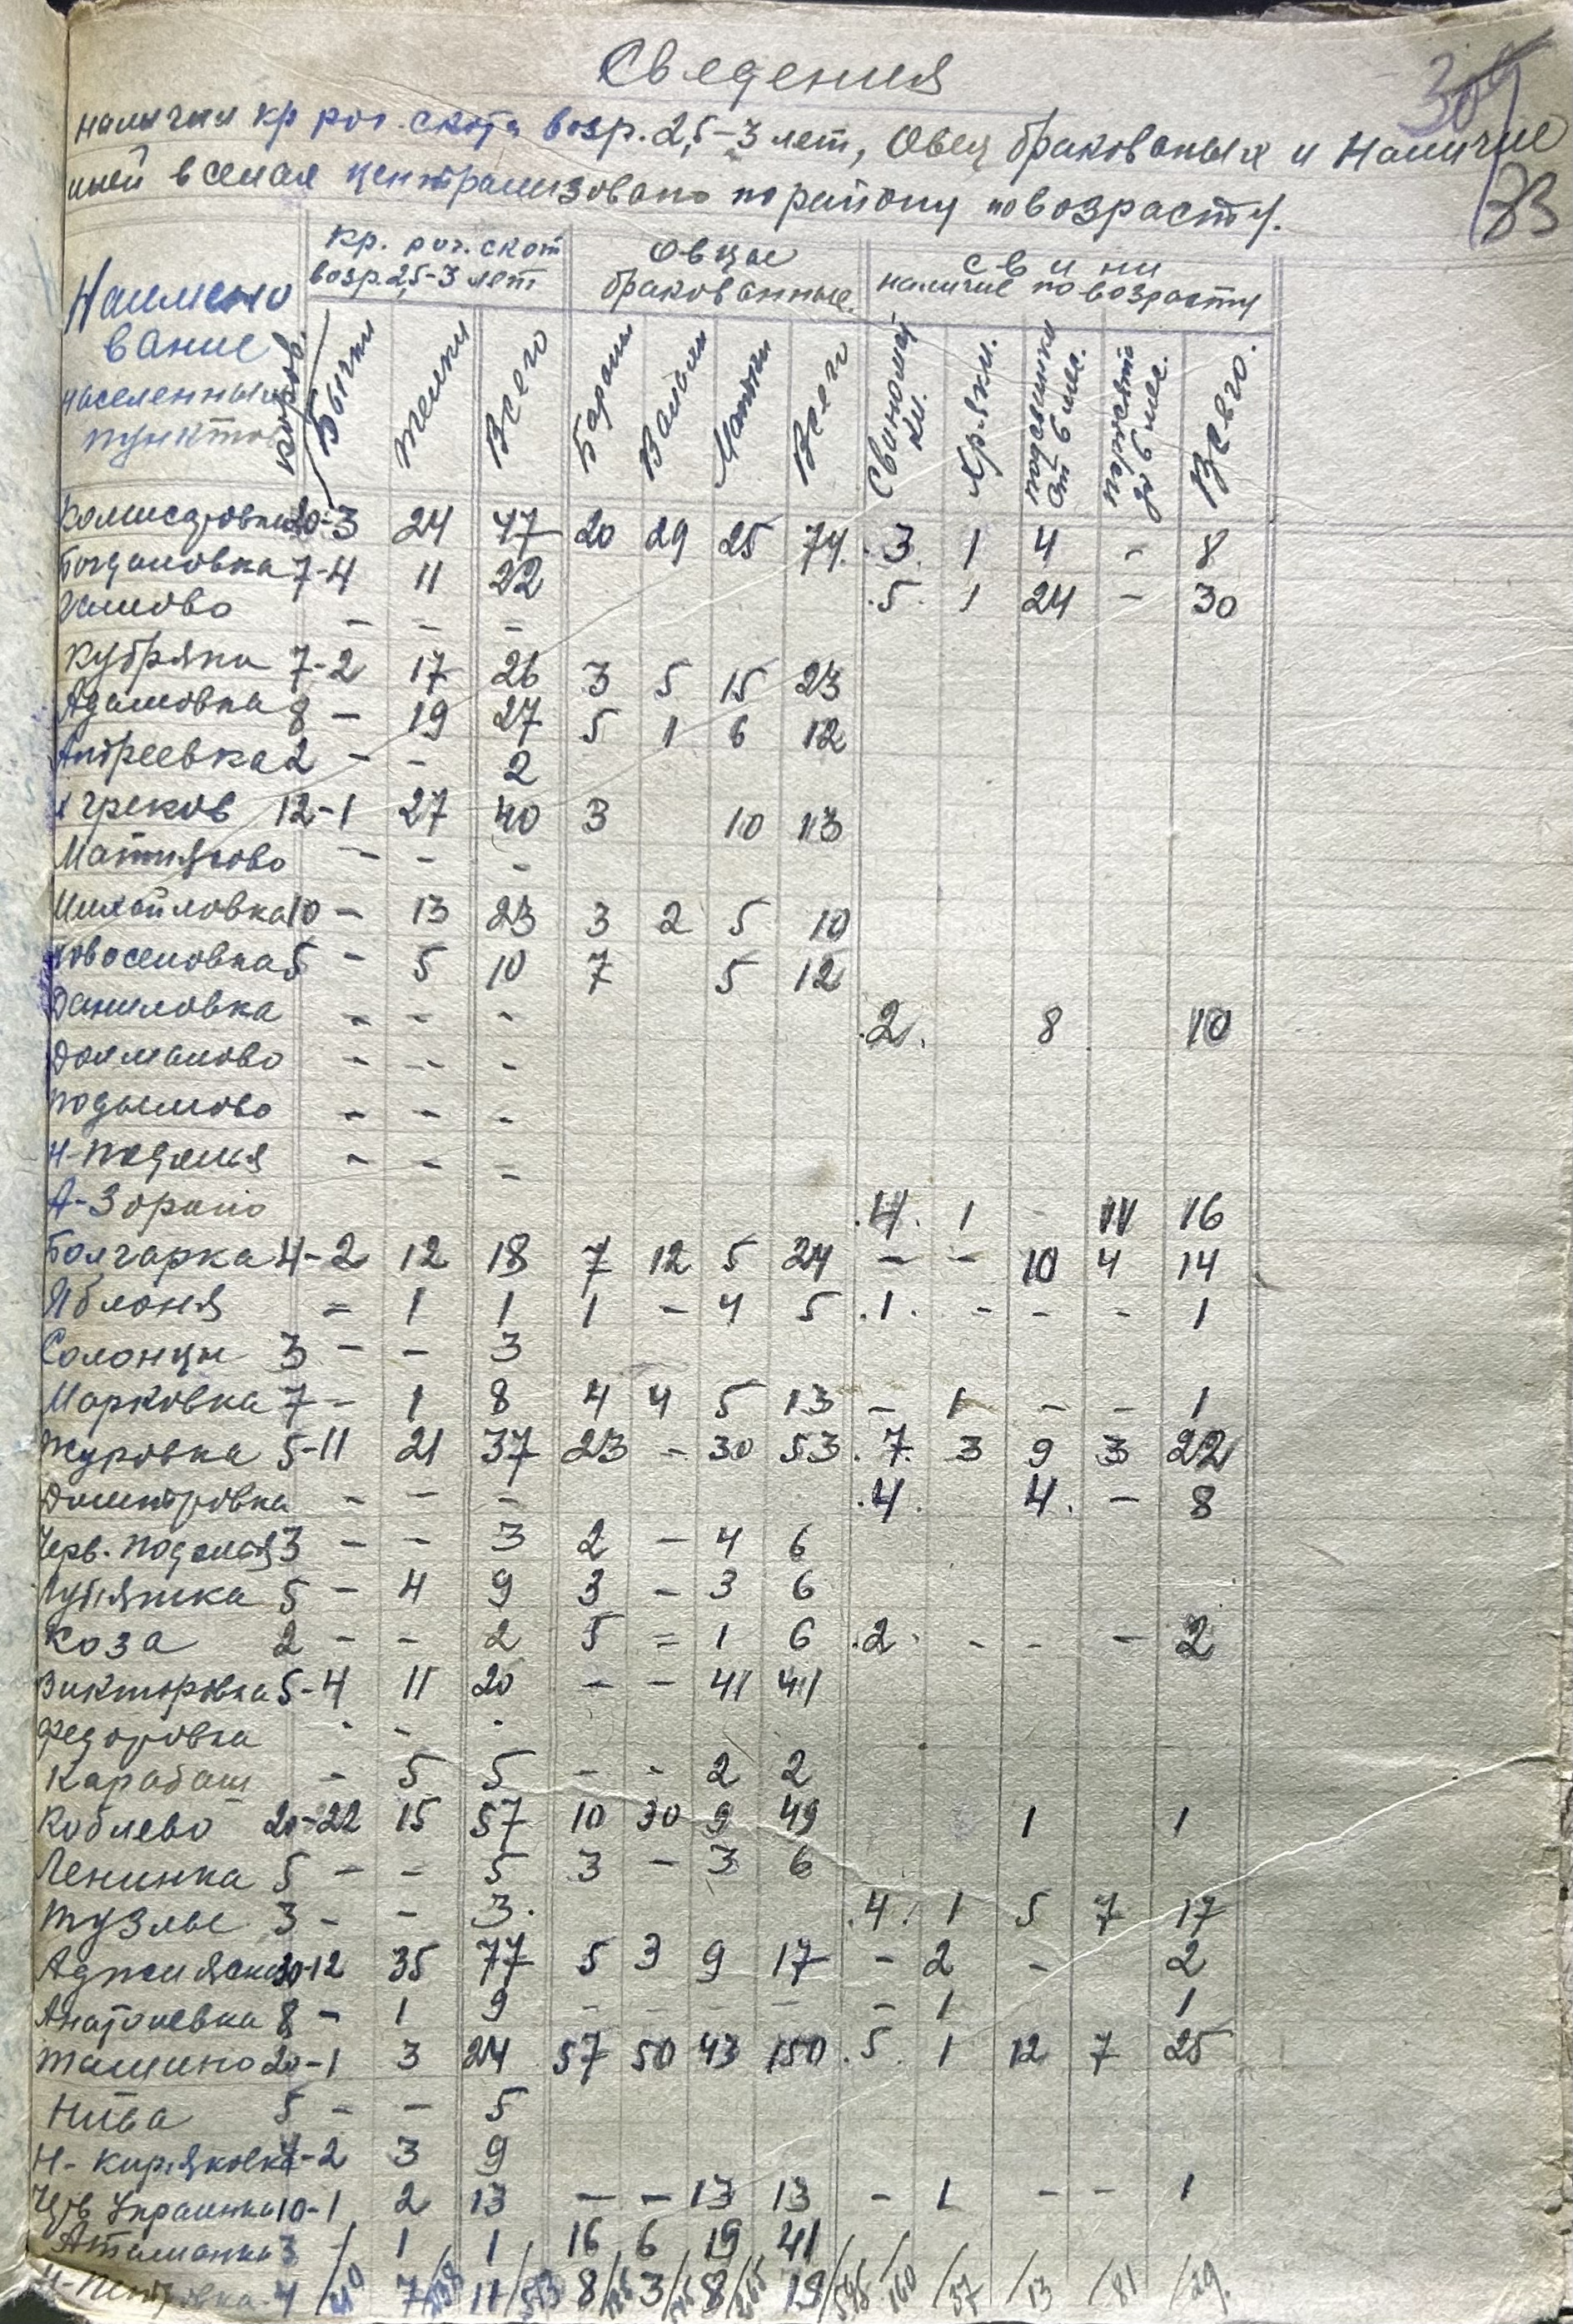 Сведения
наличия кр рог. скота возр. 2,5-3 лет, Овец бракованых и Наличие
иней в селах централизовано по району по возрасту.
83
Наимено
вание
населенных
пунктов
кр. рог. скот
возр. 2,5-3 лет
Овцы
бракованные
свини
наличие по возрасту
коров. Бычки телки Всего Бараны Валахи Матки Всего Свиномат. Хряки. подсвинки от 6 мес. поросята до 6 мес. Всего.
Комисаровка 20-3 24 47 20 29 25 74. 3. 1 4 - 8
Богдановка 7-4 11 22 5. 1 24 - 30
- - -
Кубряки 7-2 17 26 3 5 15 23
Адамовка 8 - 19 27 5 1 6 12
Андреевка 2 - - 2
х Греков 12-1 27 40 3 10 13
Матиясово - - -
Михайловка 10 - 13 23 3 2 5 10
Новоселовка 5 - 5 10 7 5 12
Даниловка - - - 2. 8 10
Долманово - - -
Подымово - - -
Н-Подолия - - -
А-Зорино 4. 1 - 11 16
Болгарка 4-2 12 18 7 12 5 24 - - 10 4 14
Яблоня - 1 1 1 - 4 5 1. - - - 1
Солонцы 3 - - 3
Марковка 7 - 1 8 4 4 5 13 - 1 - - 1
Журовка 5-11 21 37 23 - 30 53. 7. 3 9 3 22
Димитровка - - - 4. 4. - 8
Черв. Подолия 3 - - 3 2 - 4 6
Лубянка 5 - 4 9 3 - 3 6
Коза 2 - - 2 5 = 1 6 2. - - - 2
Викторовка 5-4 11 20 - - 41 41
Федоровка - - -
Карабаш - 5 5 - - 2 2
Коблево 20-22 15 57 10 30 9 49 1 1
Ленинка 5 - - 5 3 - 3 6
Тузлы 3 - - 3. 4. 1 5 7 17
Аджияска 30-12 35 77 5 3 9 17 - 2 - 2
Анатолевка 8 - 1 9 - - - - - 1 1
Ташино 20-1 3 24 57 50 43 150. 5. 1 12 7 25
Нива 5 - - 5
Н-Киряковка 4-2 3 9
Черв Украинка 10-1 2 13 - - 13 13 - 1 - - 1
Атаманка 3 1 1 16 6 19 41
Н-Петровка 4 7 11 8 3 8 19